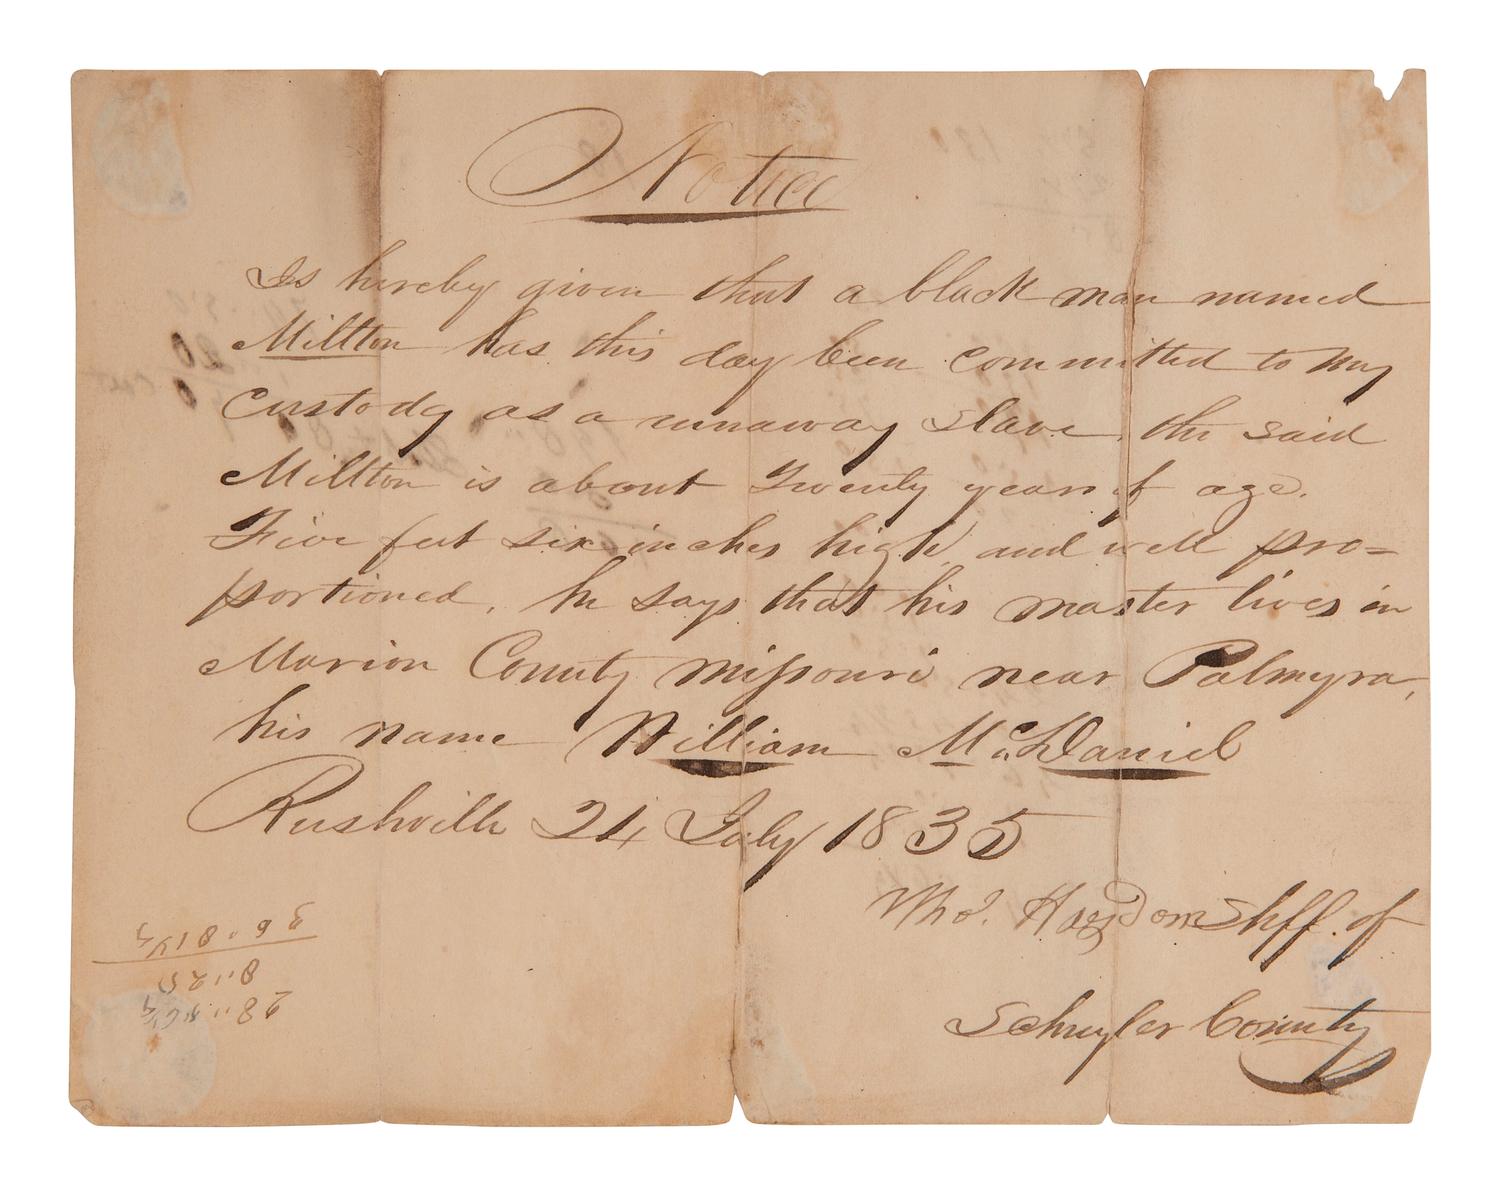 Notice
Is hereby given that a black man named
Millton has this day been committed to my
Custody as a runaway Slave, the said
Millton is about Twenty years of age.
Five feet six inches high, and well pro=
portioned, he says that his master lives in
Marion County Missouri near Palmyra,
his name William McDaniel
Rushville 24 July 1835
Tho's. Haydon Shff. of
Schuyler County
28 " 56¼
8 " 25
36 " 81¼